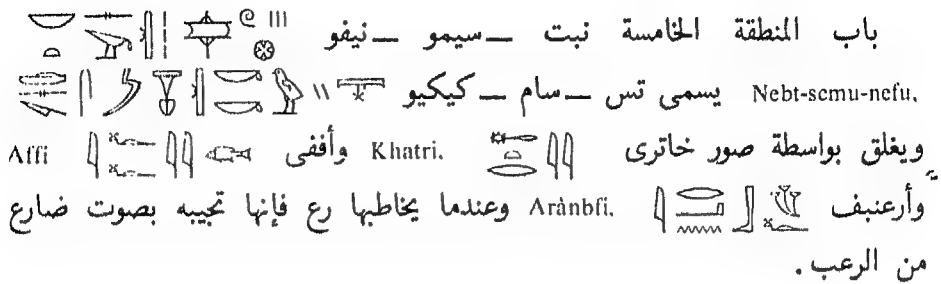 باب المنطقة الخامسة نبت ــ سيمو ــ نيفو
Nebt-semu-nefu. يسمى تس ــ سام ــ كيكيو
ويغلق بواسطة صور خاترى Khatri. وأففى Affi
وأرعنبف Arànbfi. وعندما يخاطبها رع فإنها تجيبه بصوت ضارع
من الرعب .